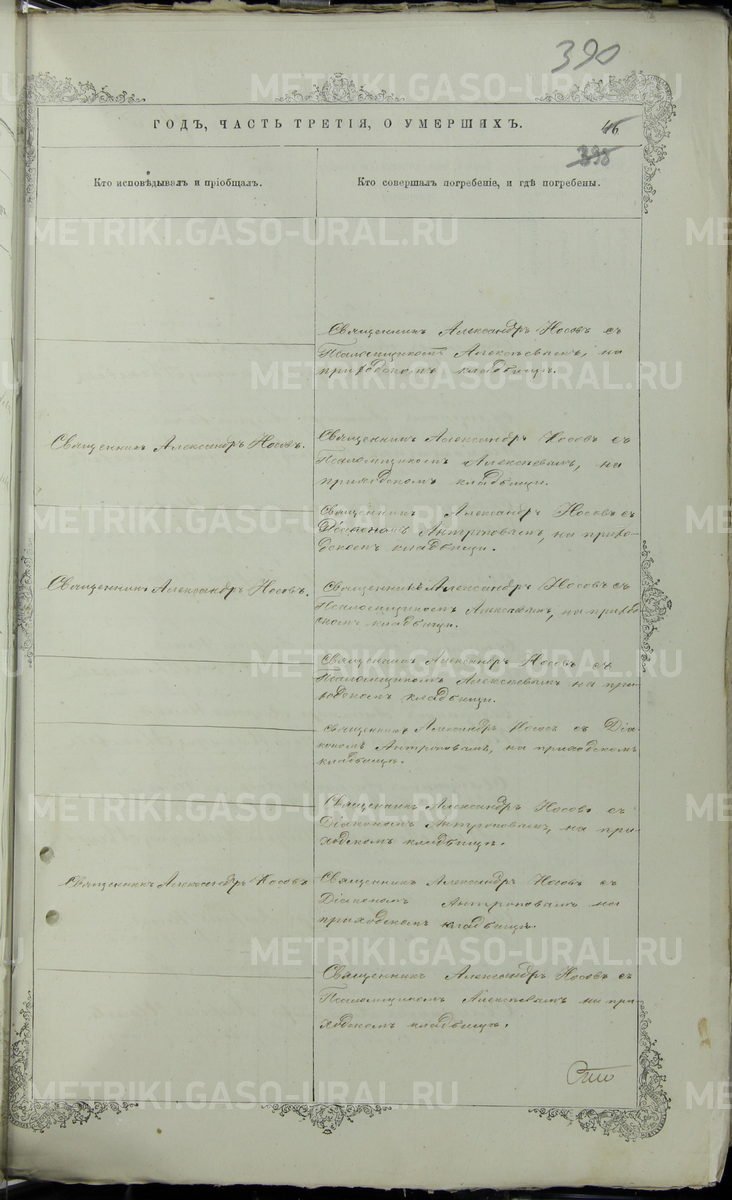 390
ГОДЪ, ЧАСТЬ ТРЕТІЯ, О УМЕРШИХЪ.
46
395
Кто исповѣдывалъ и пріобщалъ.
Кто совершалъ погребеніе, и гдѣ погребены.
Священникъ Александръ Носовъ съ
Псаломщикомъ Алексѣевымъ, на
приходскомъ кладбищѣ.
Священникъ Александръ Носовъ.
Священникъ Александръ Носовъ съ
Псаломщикомъ Алексѣевымъ, на
приходскомъ кладбищѣ.
Священникъ Александръ Носовъ съ
Діакономъ Антроповымъ, на прихо-
дскомъ кладбищѣ.
Священникъ Александръ Носовъ.
Священникъ Александръ Носовъ съ
Псаломщикомъ Алексѣевымъ, на приход
скомъ кладбищѣ.
Священникъ Александръ Носовъ съ
Псаломщикомъ Алексѣевымъ на при-
ходскомъ кладбищѣ.
Священникъ Александръ Носовъ съ Діа-
кономъ Антроповымъ, на приходскомъ
кладбищѣ.
Священникъ Александръ Носовъ съ
Діакономъ Антроповымъ, на при-
ходскомъ кладбищѣ.
Священникъ Александръ Носовъ
Священникъ Александръ Носовъ съ
Діакономъ Антроповымъ на
приходскомъ кладбищѣ.
Священникъ Александръ Носовъ съ
Псаломщикомъ Алексѣевымъ на при
ходскомъ кладбищѣ.
METRIKI.GASO-URAL.RU